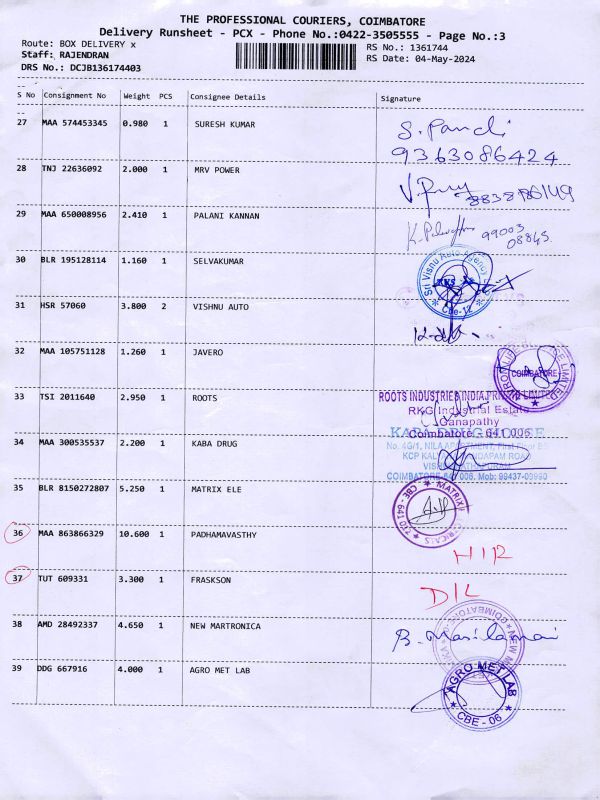 THE PROFESSIONAL COURIERS, COIMBATORE
Delivery Runsheet - PCX - Phone No.:0422-3505555 - Page No.:3
Route: BOX DELIVERY x
RS No.: 1361744
Staff: RAJENDRAN
RS Date: 04-May-2024
DRS No.: DCJB136174403
S No Consignment No Weight PCS Consignee Details Signature
27 MAA 574453345 0.980 1 SURESH KUMAR
S. Pandi
9363086424
28 TNJ 22636092 2.000 1 MRV POWER
29 MAA 650008956 2.410 1 PALANI KANNAN
99003
08845
30 BLR 195128114 1.160 1 SELVAKUMAR
Sri Visnu Auto Agency
Cbe-12
31 HSR 57060 3.800 2 VISHNU AUTO
32 MAA 105751128 1.260 1 JAVERO
COIMBATORE
33 TSI 2011640 2.950 1 ROOTS
ROOTS INDUSTRIES INDIA PRIVATE LIMITED
RKG Industrial Estate
Ganapathy
Coimbatore - 641 006
34 MAA 300535537 2.200 1 KABA DRUG
KABA DRUG HOUSE
No. 4G/1, NILA APARTMENT, First Floor
COIMBATORE-641 006. Mob: 99437-09990
35 BLR 8150272807 5.250 1 MATRIX ELE
MATRIX
CBE - 641
36 MAA 863866329 10.600 1 PADHAMAVASTHY
HIR
37 TUT 609331 3.300 1 FRASKSON
D/L
38 AMD 28492337 4.650 1 NEW MARTRONICA
COIMBATORE
B. Masilamai
39 DDG 667916 4.000 1 AGRO MET LAB
AGRO MET LAB
CBE - 06